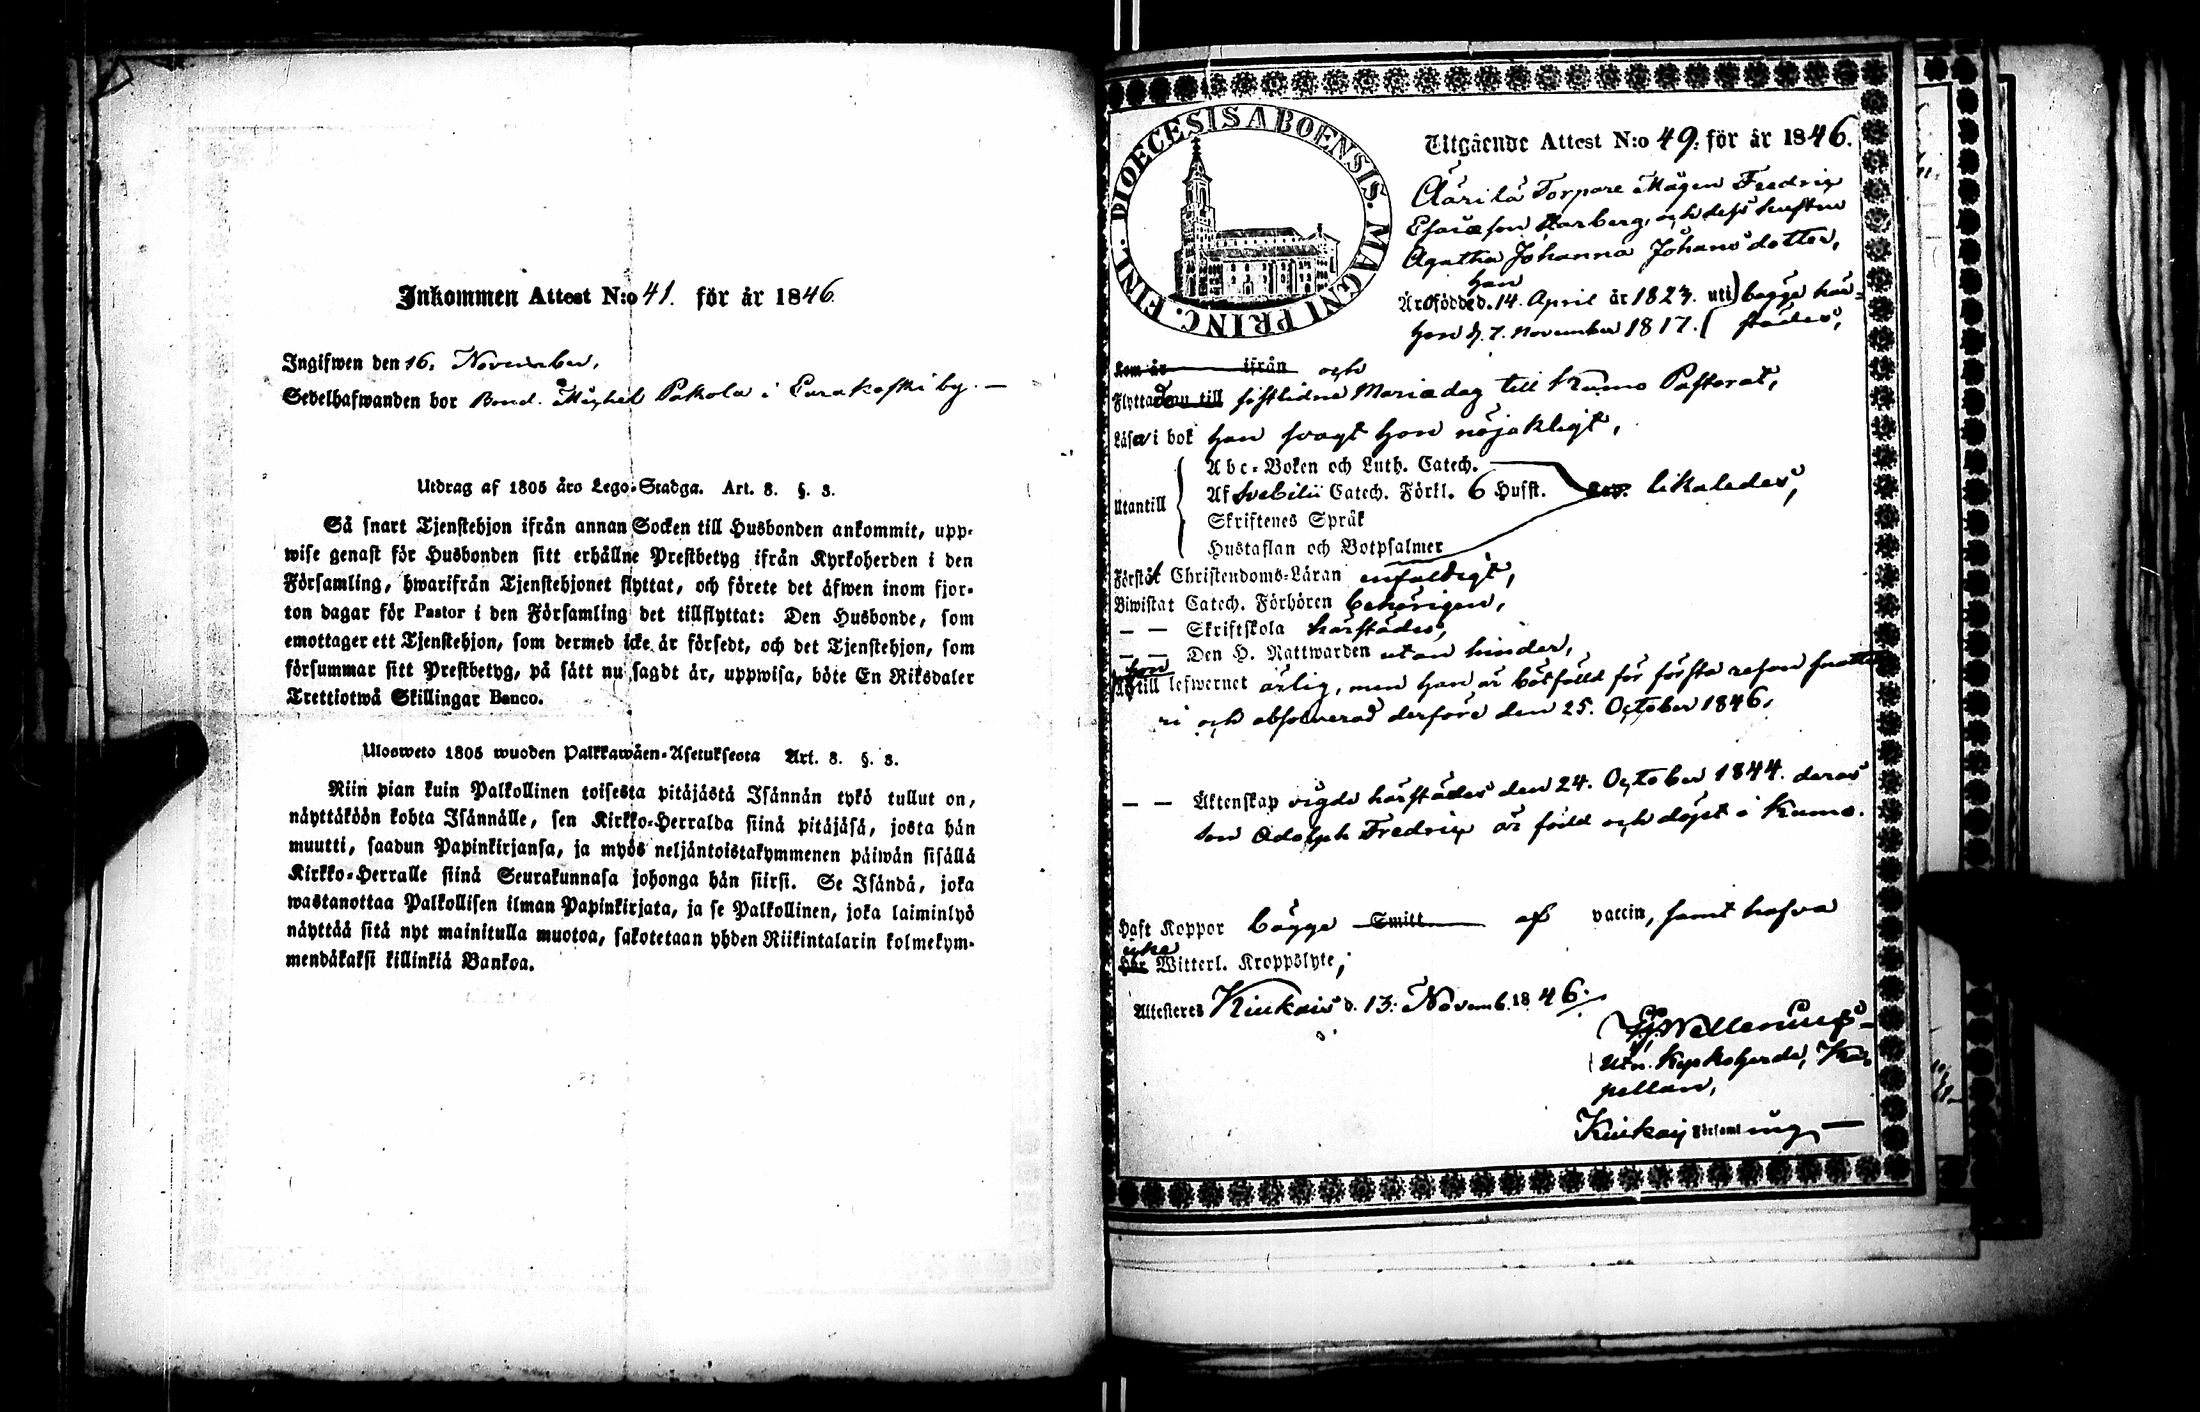 Inkommen Attest N:o 41. för år 1846.
Ingifwen den 16. November.
Sedelhafwanden bor Bond. Michel Pakola i Eurakoski by. —
Utdrag af 1805 års Lego-Stadga. Art. 8. §. 3.
Så snart Tjenstehjon ifrån annan Socken till Husbonden ankommit, upp-
wise genast för Husbonden sitt erhållne Prestbetyg ifrån Kyrkoherden i den
Församling, hwarifrån Tjenstehjonet flyttat, och förete det äfwen inom fjor-
ton dagar för Pastor i den Församling det tillflyttat: Den Husbonde, som
emottager ett Tjenstehjon, som dermed icke är försedt, och det Tjenstehjon, som
försummar sitt Prestbetyg, på sätt nu sagdt är, uppwisa, böte En Riksdaler
Trettiotwå Skillingar Banco.
Ulosweto 1805 wuoden Palkkawäen-Asetuksesta Art. 8. §. 3.
Niin pian kuin Palkollinen toisesta pitäjästä Isännän tykö tullut on,
näyttäköön kohta Isännälle, sen Kirkko-Herralda siinä pitäjäsä, josta hän
muutti, saadun Papinkirjansa, ja myös neljäntoistakymmenen päiwän sisällä
Kirkko-Herralle siinä Seurakunnasa johonga hän siirsi. Se Isändä, joka
wastanottaa Palkollisen ilman Papinkirjata, ja se Palkollinen, joka laiminlyö
näyttää sitä nyt mainitulla muotoa, sakotetaan yhden Riikintalarin kolmekym-
mendäkaksi killinkiä Bankoa.
DIOECESIS ABOENSIS. MAGNI PRINC. FINL.
Utgående Attest N:o 49. för år 1846.
Torpare Mågen Fredric
Esaiæson och dess hustru
Agatha Johanna Johansdotter,
han
Äro födde d. 14. April år 1823. uti } bägge här-
hon d. 7. November 1817. } städes,
Kom år ifrån och
Flyttade nu till sistlidne Mariædag till Kumo Pastorat,
Läsa i bok han svagt hon nöjaktigt,
Utantill
Abc-Boken och Luth. Catech.
Af Svebilii Catech. Förkl. 6 Husst. likaledes,
Skriftenes Språk
Hustaflan och Botpsalmer
Förstå Christendoms-Läran enfaldigt,
Biwistat Catech. Förhören behörigen,
— — Skriftskola härstädes,
— — Den H. Nattwarden utan hinder,
hon
till lefwernet ärlig, men han är bötfälld för första resan snatte-
ri och absolverad derföre den 25. October 1846.
— — Äktenskap vigde härstädes den 24. October 1844. deras
son Adolph Fredric är född och döpt i Kumo.
Haft Koppor bägge Smitt af vaccin, samt hafva
icke
Har Witterl. Kroppslyte,
Attesteras Kiukais d. 13. Novemb. 1846.
Kyrkoherde, Ka-
pellan,
Kiukais Församling —